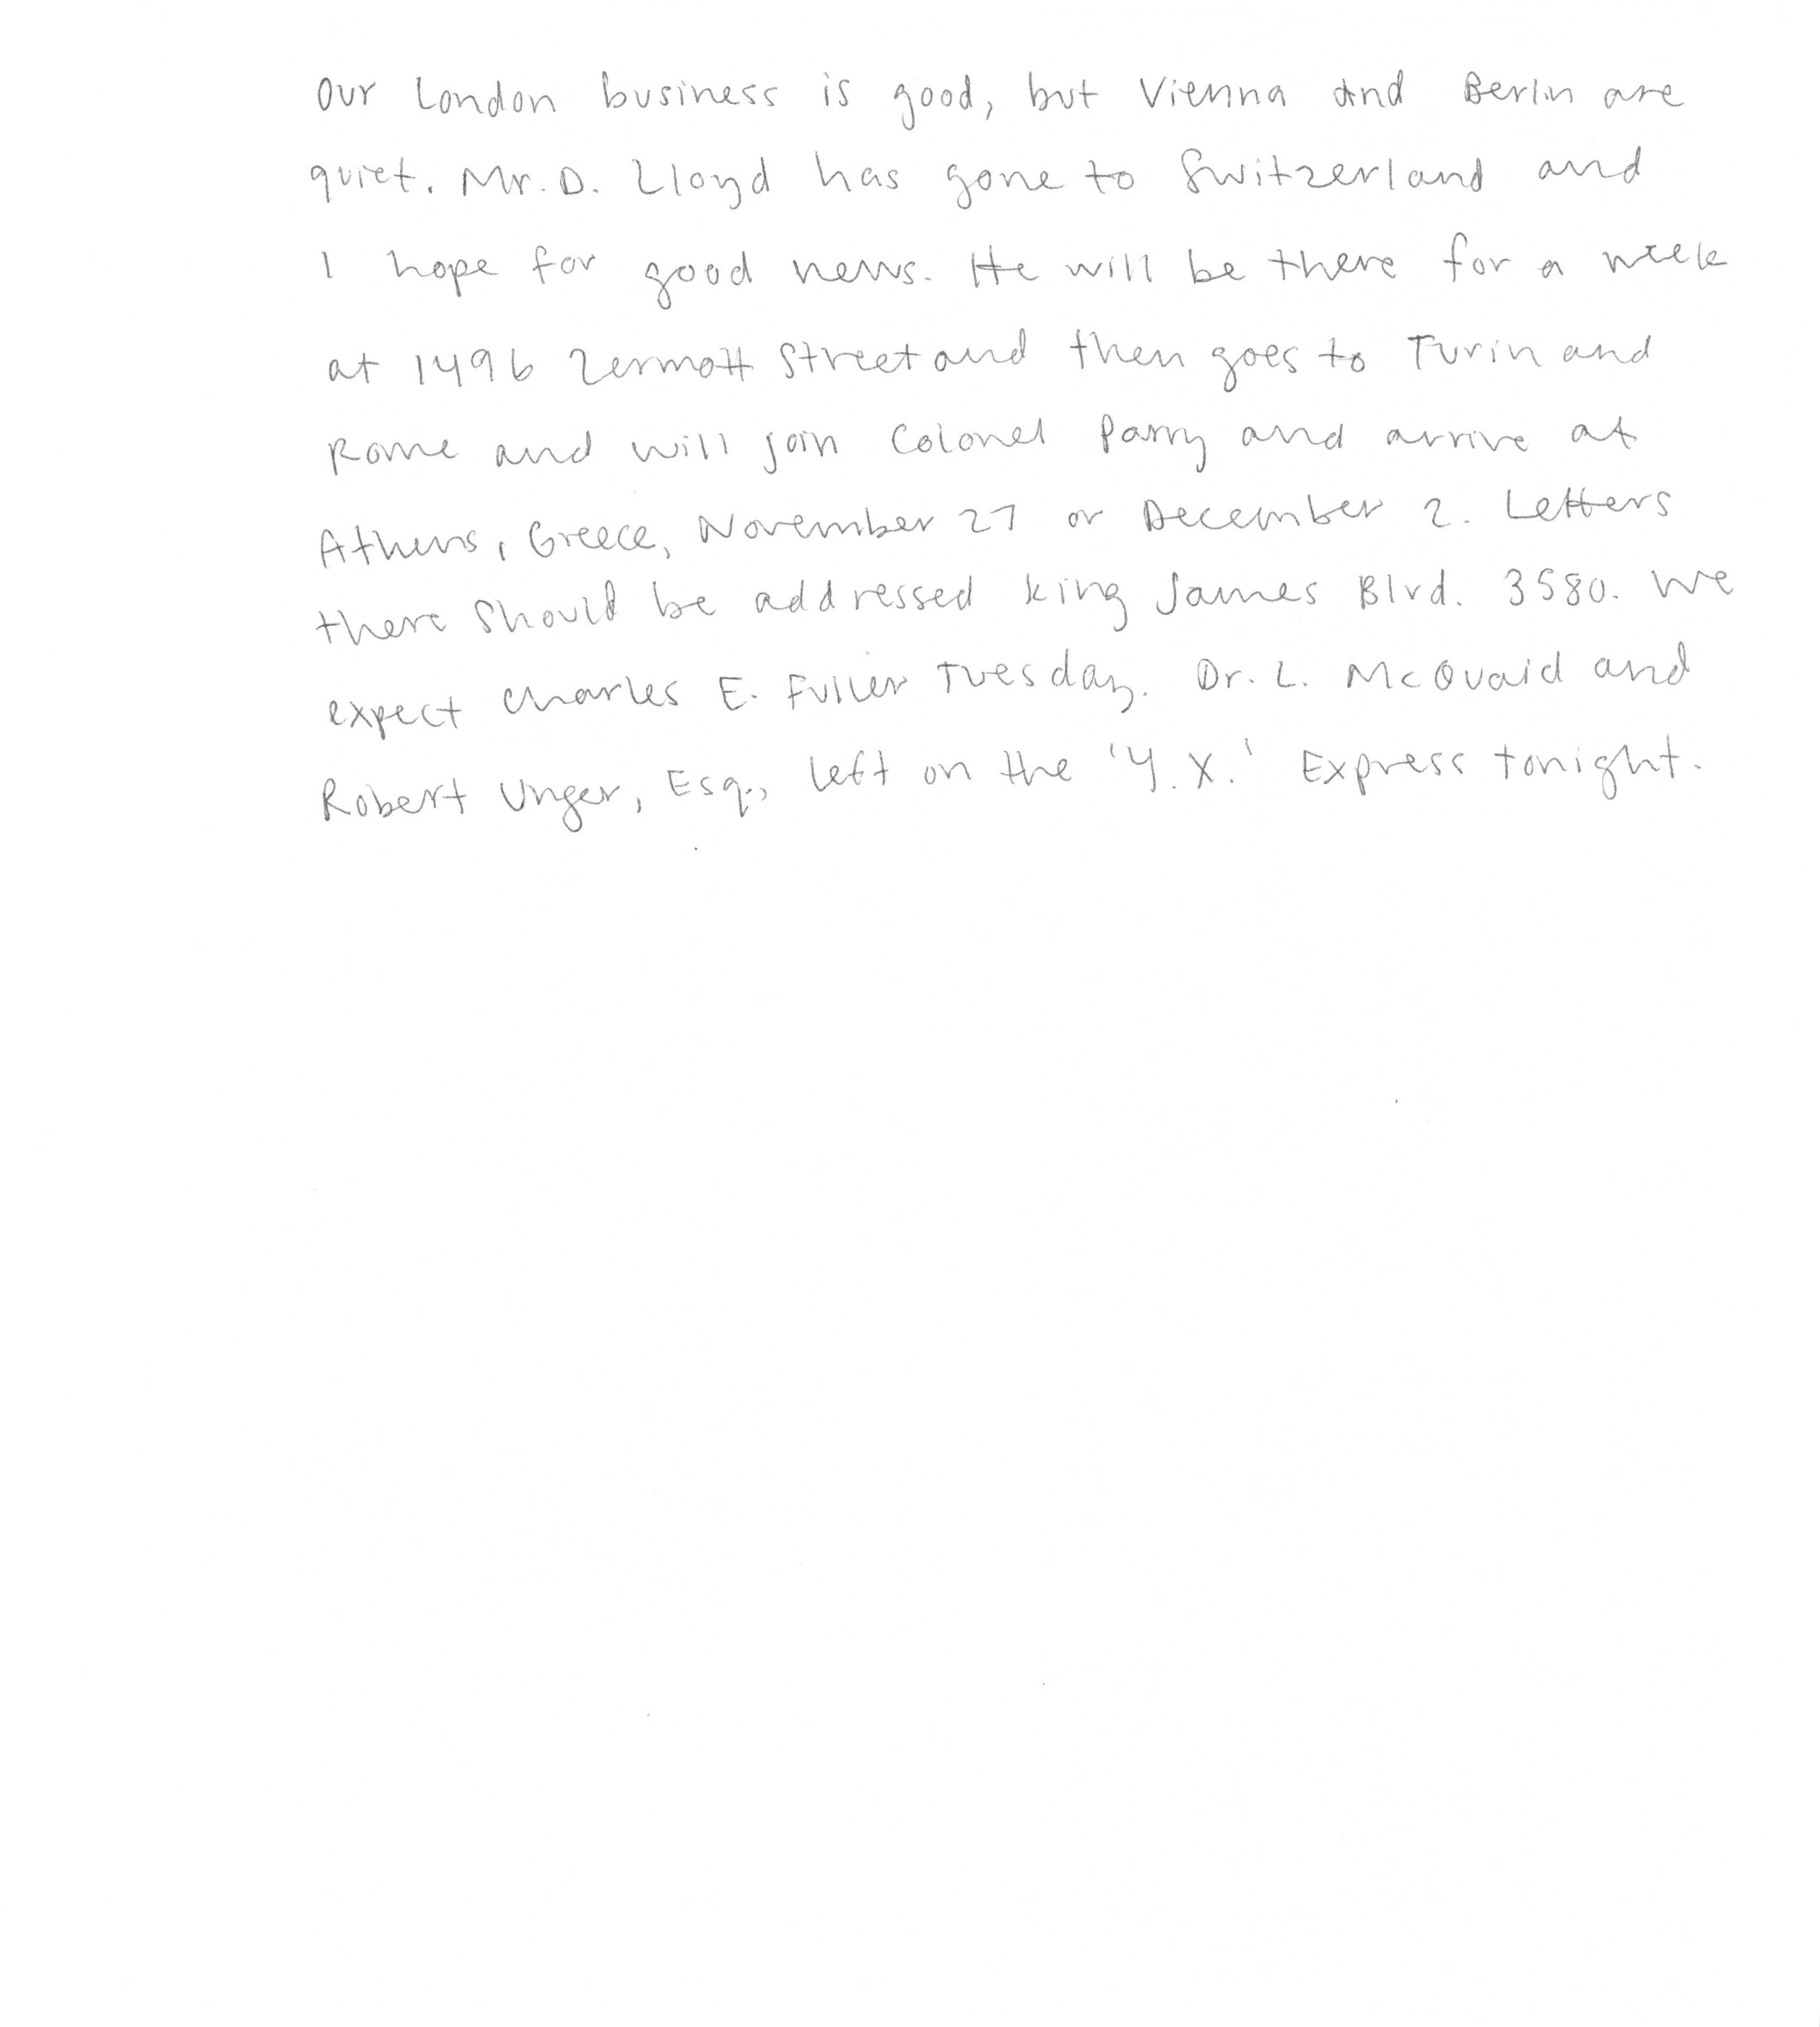 Our London business is good, but Vienna and Berlin are
quiet. Mr. D. Lloyd has gone to Switzerland and
I hope for good news. He will be there for a week
at 1496 Zermott Street and then goes to Turin and
Rome and will join Colonel Parry and arrive at
Athens, Greece, November 27 or December 2. Letters
there should be addressed King James Blvd. 3580. We
expect Charles E. Fuller Tuesday. Dr. L. McQuaid and
Robert Unger, Esq., left on the 'Y.X.' Express tonight.